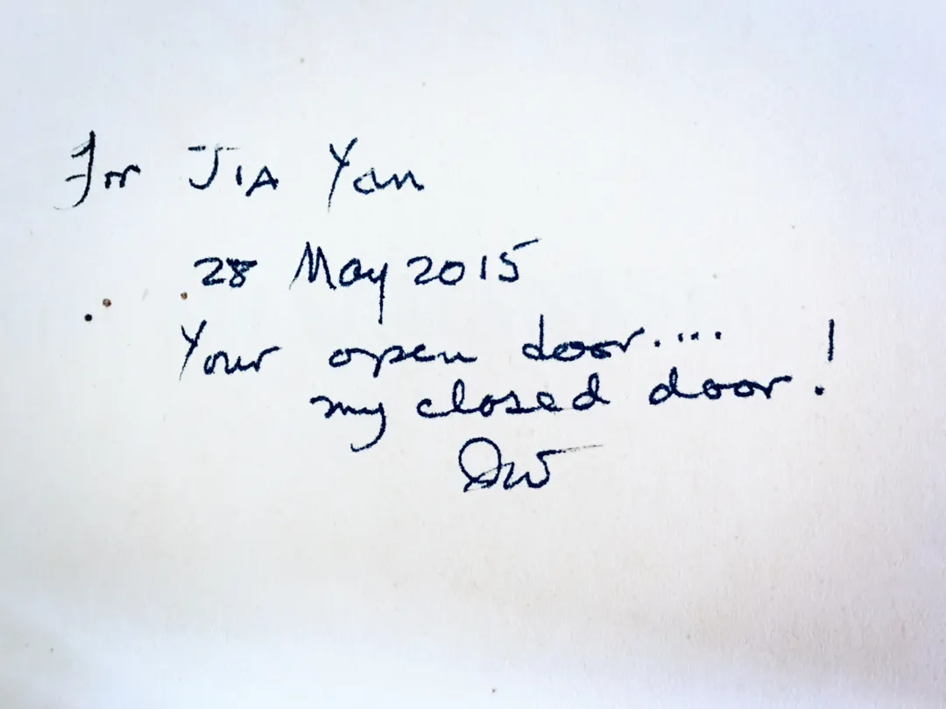 For JIA Yan
28 May 2015
Your open door....
my closed door!
DW